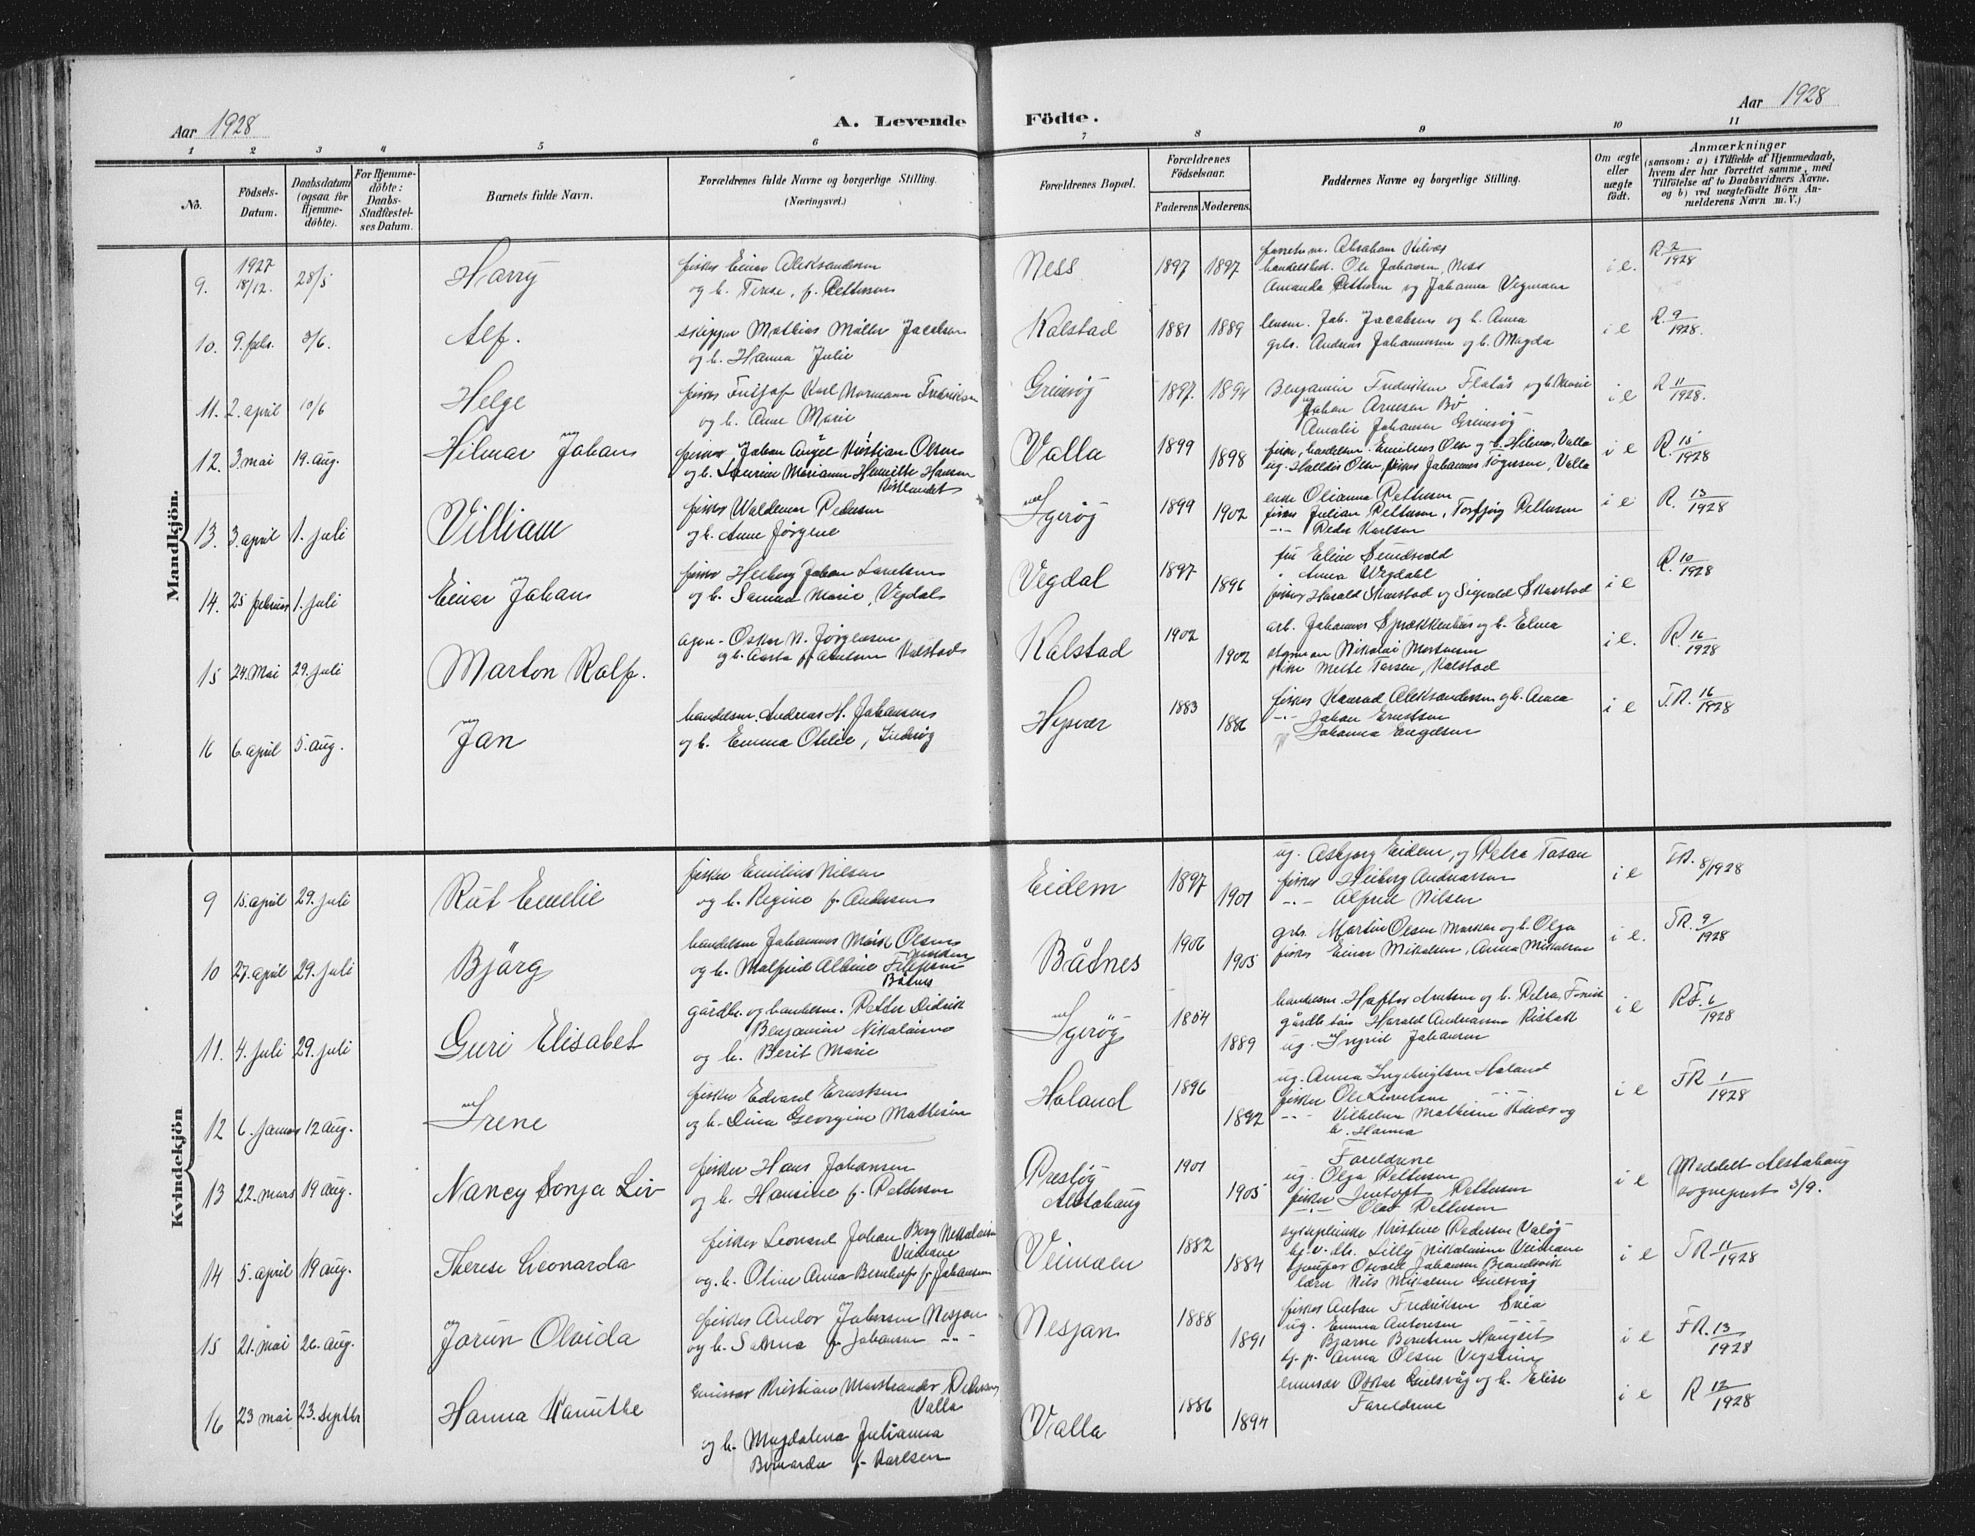 Aar 1928
A. Levende
Födte.
Aar 1928
1 2 3 4 5 6 7 8 9 10 11
No.
Födsels-
Datum.
Daabsdatum
(ogsaa for
Hjemme-
döbte).
For Hjemme-
döbte:
Daabs-
Stadfæstel-
ses Datum.
Barnets fulde Navn.
Forældrenes fulde Navne og borgerlige Stilling.
(Næringsvei.)
Forældrenes Bopæl.
Forældrenes
Födselsaar.
Faderens. Moderens.
Faddernes Navne og borgerlige Stilling.
Om ægte
eller
uægte
födt.
Anmærkninger
(saasom: a) i Tilfælde af Hjemmedaab,
hvem der har forrettet samme, med
Tilföielse af to Daabsvidners Navne.
og b) ved uægtefödte Börn An-
melderens Navn m. V.)
Mandkjön.
9. 1927 18/12. 28/5 Harry
fisker Einar Aleksandersen
og h. Terese, f. Pettersen
Ness 1897 1897
Abraham Kilvær
handelsbet. Ole Johansen, Ness
Amanda Pettersen og Johanna Vegmoen
i e. R. 2/1928
10. 9. febr. 3/6. Alf.
skipper Mathias Möller Jacobsen
og h. Hanna Julie
Kalstad 1881 1889
lensm. Joh. Jacobsen og h. Anna
grb. Andreas Johannesen og h. Magda
i e R. 9/1928.
11. 2. april 10/6 Helge
fisker Fritjof Karl Normann Fredriksen
og h. Anne Marie
Grimsöy 1897. 1894
Benjamin Fredriksen Flatös og h. Marie
Johan Arnesen Bö
Amalie Johansen Grimsöy
i e R 11/1928.
12. 3. mai 19. aug. Hilmar Johan
fisker Johan Angel Kristian Olsen
og h. Laurine Marianne Henriette Hansen
Valla 1899 1898
fisker, handelsm. Emilius Olsen og h. Hilma, Valla
ug. Halldis Olsen, fisker Johannes Tögersen, Valla
i e R. 15/1928
13. 3. april 1. juli Villiam
fisker Waldemar Pedersen
og h. Anne Jörgine
Igeröy 1899 1902
enke Olianna Pettersen
fisker Julian Pettersen, Torbjörg Pettersen
-"- Peder Karlsen
i e R. 13/1928
14. 25 februar 1. juli Einar Johan
fisker Heiberg Johan Lorntsen
og h. Sanna Marie, Vegdal
Vegdal 1897 1896
fru Eline Sundsvold
" Anna Vegdahl
fisker Harald Skarstad og Sigvald Skarstad
i e R. 10/1928
15 24. Mai 29. juli Marton Ralf.
agen- Oskar N. Jörgensen
og h. Aasta f. Arntsen Kalstad
Kalstad 1902 1902
arb. Johannes Sprækkenhus og h. Elma
styrman Nikolai Mortensen
Mette Torsen, Kalstad
i e. R. 16/1928
16 6. april 5. aug. Jan
handelsm. Andreas H. Johansen
og h. Emma Otilie, Indröy
Hysvær 1883 1886
fisker Konrad Aleksandersen og h. Anna
-"- Johan Erntsen
Johanna Engelsen
i e T.R. 16/1928
Kvindekjön
9 15. april 29. juli Rut Emelie
fisker Emilius Nilsen
og h. Regine f. Andersen
Eidem 1897 1901
ug. Asbjörg Eidem, og Petra Tosan
fisker Heiberg Andreassen
-"- Alfred Nilsen
i e T.R. 8/1928
10 27. april 29. juli Björg
handelsm Johannes Marsk Olsen
og h. Malfrid Albine Filipsen
Båtnes
Båtnes 1906 1905
grb. Martin Olsen Marken og h. Olga
fisker Einar Mikalsen, Anna Mikalsen
i e. T.R. 9/1928
11. 4. juli 29. juli Guri Elisabet
gårdbr. og handelsm. Petter Didrik
Benjamin Nikolaisen
og h. Berit Marie
Igeröy 1884 1889
handelsm. Hafter Arntsen og h. Petra,
gårdbr. Harald Andreassen Risbakk
ug. Ingrid Johansen
i e RF. 6/1928
12 6. januar 12 aug. Irene
fisker Edvard Erntsen
og h. Dina Georgine Mathisen
Holand 1896 1892
ug. Anna Ingebrigtsen Holand
fisker Ole Lorntsen -"-
-"- Vilhelm Mathisen Kilvær og
h. Hanna
i e FR 1/1928
13 22. mars 19 aug. Nancy Sonja Liv
fisker Hans Johansen
og h. Hansine f. Pettersen
Prestöy
Alstahaug 1901 1905
Foreldrene
ug. Olga Pettersen
fisker Pettersen
-"- Olav Pettersen
i e Meddelt Alstahaug
sogneprest 3/9.
14 5. april 19 aug. Therese Leonarda
fisker Leonard Johan Berg Nikolaisen
Veimoen
og h. Oline Anna Bernhof f. Johansen
Veimoen 1882 1884
sykepleierske Kristine Pedersen Valöy
hj. v. dtr. Lilly Nikolaisen Veimoen
Osvald Johansen Brandsvik
lærer Nils Mikalsen Gulsvåg
i e T.R. 11/1928
15 21. mai 26. aug. Jorun Olvida
fisker Andor Johansen Nesjan
og h. Sanna f. Johansen -"-
Nesjan 1888 1891
fisker Anton Fredriksen
ug. Emma Antonsen
Bjarne Berntsen
hj. p. Anna Olsen Vegsteine
i e F.R. 13/1928
16 23 mai 23. septbr Hanna Kanutte
emissær Kristian Marstrander Pedersen
Valla
og h. Magdalena Julianna
Bernarda f. Karlsen
Valla 1886 1894
emissær Oskar Gulsvåg og h. Elise
Foreldrene
i e R 12/1928